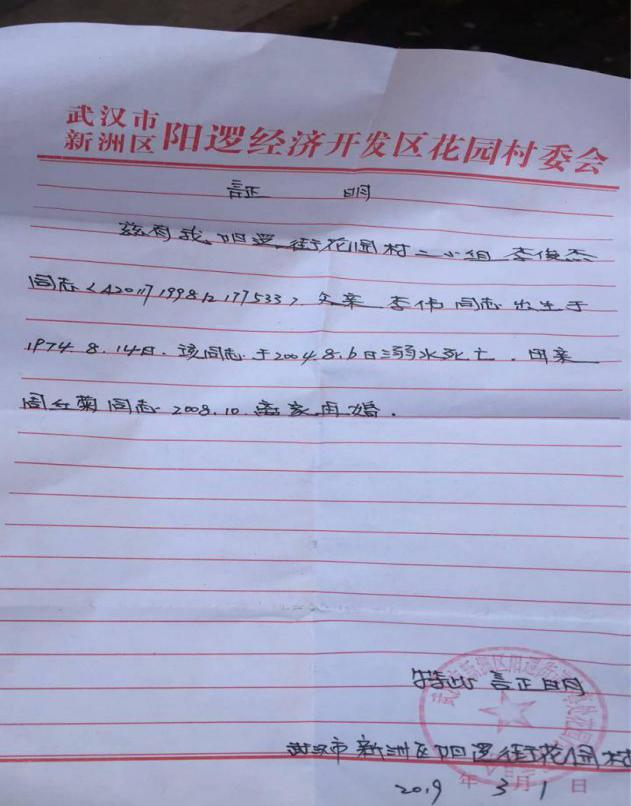 武汉市
新洲区 阳逻经济开发区花园村委会
証 明
兹有我阳逻街花园村二小组 李俊杰
同志<420117199812177533> 父亲 李伟同志 出生于
1974.8.14日. 该同志于2004.8.6日溺水死亡. 母亲
周红菊同志 2008.10 离家再婚.
特此証明
武汉市新洲区阳逻街花园村
2019年3月1日